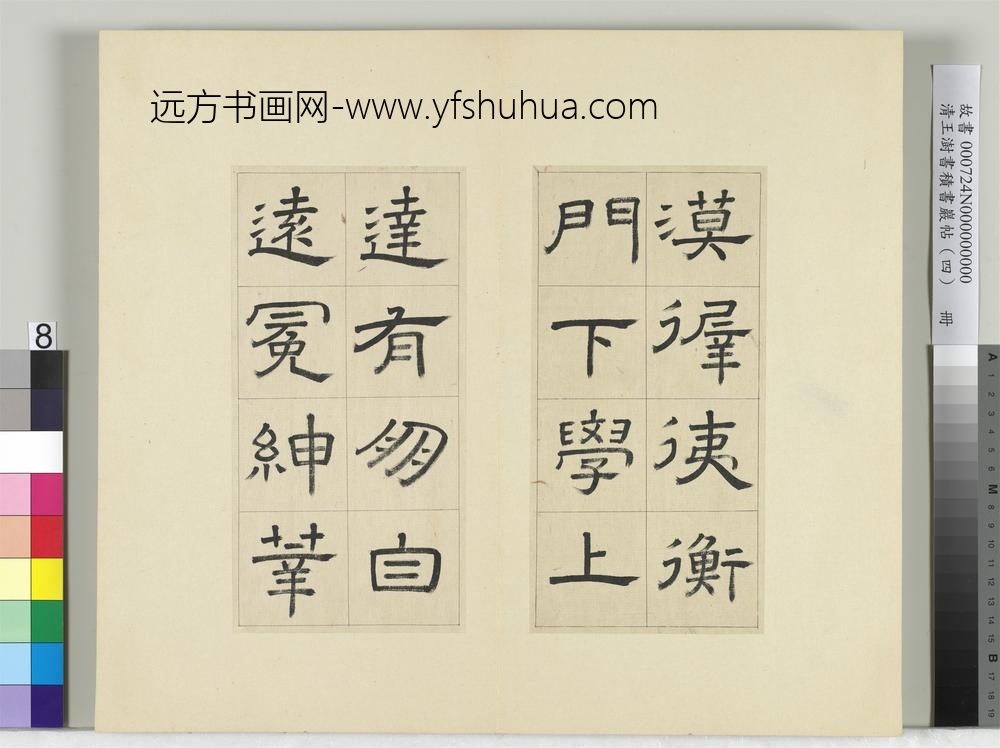 远方书画网-www.yfshuhua.com
漠徲𢓡衡
門下學上
達有朋自
遠冕紳莘
故書 000724N000000000
清王澍書積書巖帖(四) 冊
8
A 1 2 3 4 5 6 M 8 9 10 11 12 13 14 15 B 17 18 19